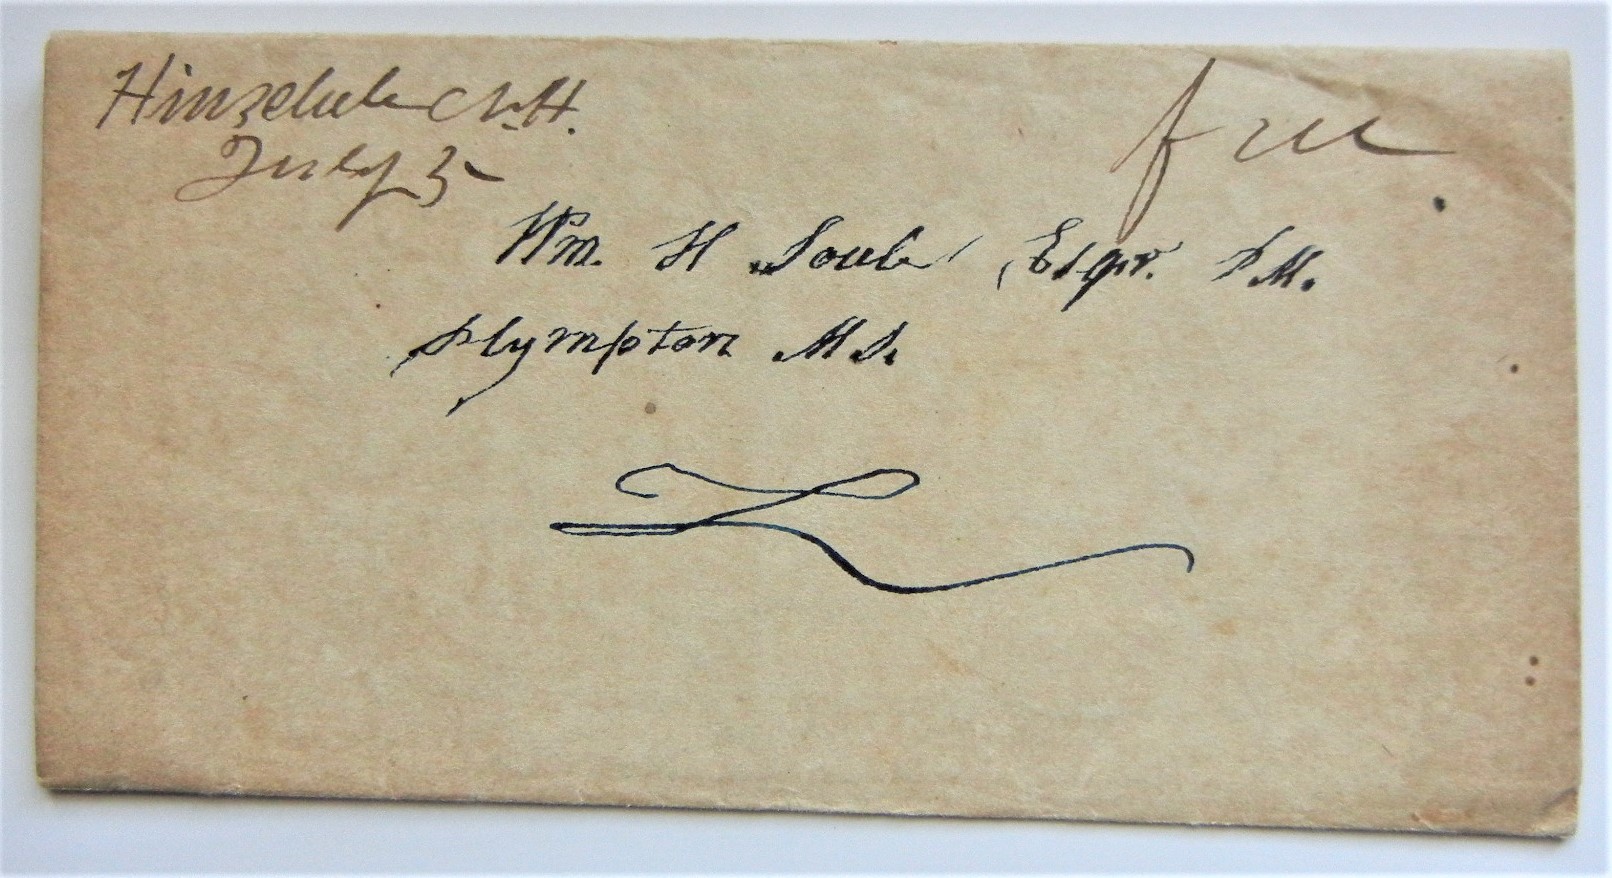 Hinsdale N.H.
July 5
free
Wm. H Soule Esqr. P.M.
Plympton Ms.